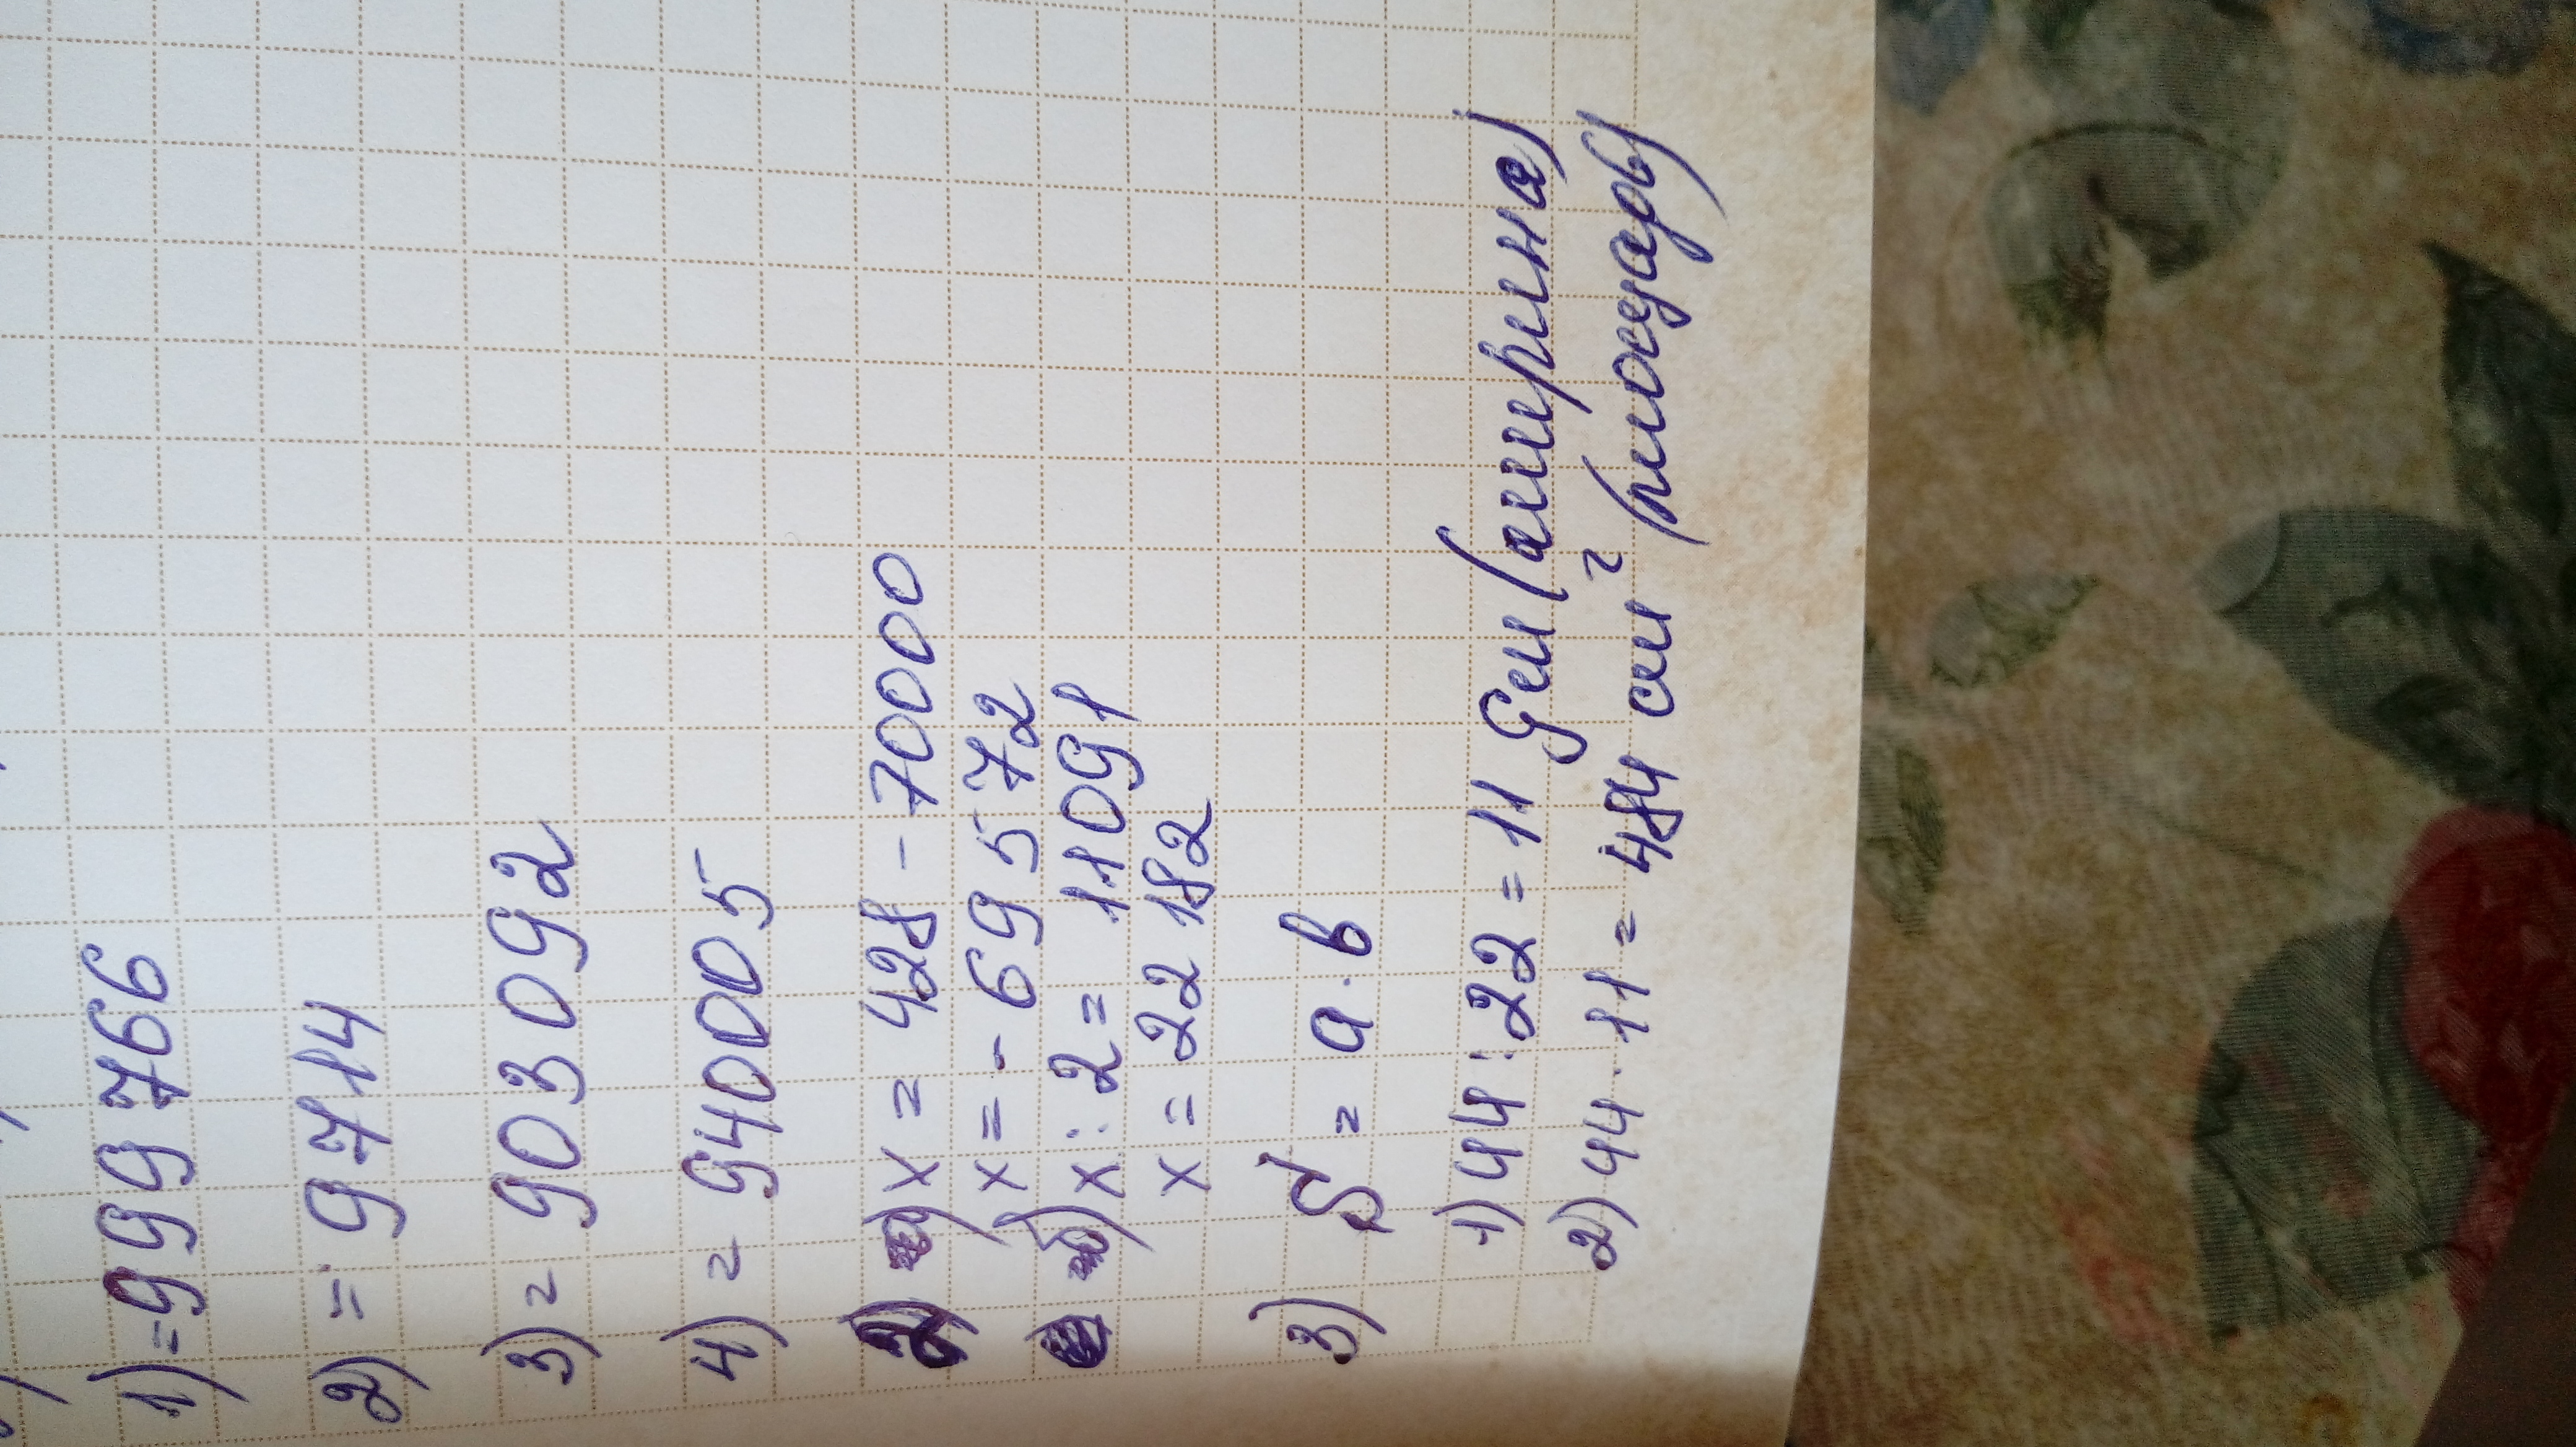 1) = 999 766
2) = 9 714
3) = 903 092
4) = 940005
2) а) x = 428 - 70000
x = - 69 572
б) x : 2 = 11091
x = 22 182
3) S = a · b
1) 44 : 22 = 11 дм (ширина)
2) 44 · 11 = 484 см² (площадь)